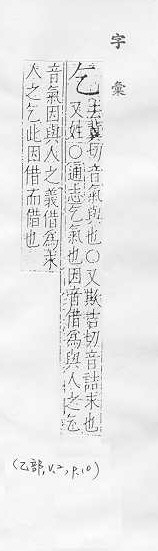 字彙
乞 去冀切音氣與也○又欺吉切音詰求也
又姓○通志乞氣也因音借為與人之乞
音氣因與人之義借為求
人之乞此因借而借也
(乙部, V.2, P.10)